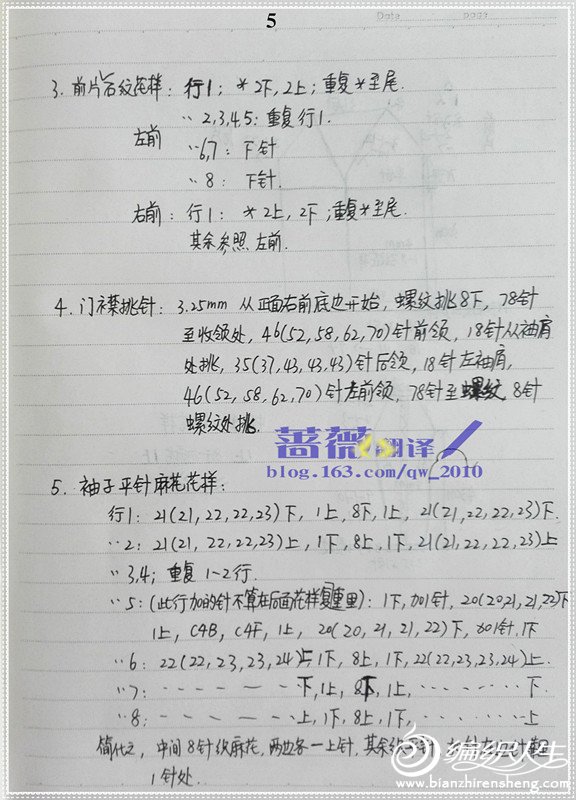 5
Date
page
3. 前片石纹花样: 行1; *2下,2上;重复*至尾.
'' 2,3,4,5: 重复行1.
左前
'' 6,7: 下针
'' 8: 下针.
右前: 行1: *2上,2下;重复*至尾.
其余参照左前.
4. 门襟挑针: 3.25mm 从正面右前底边开始, 螺纹挑8下, 78针
至收领处, 46(52,58,62,70)针前领, 18针从袖肩
处挑, 35(37,43,43,43)针后领, 18针左袖肩,
46(52,58,62,70)针左前领, 78针至螺纹, 8针
螺纹处挑.
蔷薇翻译
blog.163.com/qw_2010
5. 袖子平针麻花花样:
行1: 21(21,22,22,23)下, 1上, 8下, 1上, 21(21,22,22,23)下.
'' 2: 21(21,22,22,23)上, 1下, 8上, 1下, 21(21,22,22,23)上
'' 3,4; 重复1-2行.
'' 5: (此行加的针不算在后面花样复重里): 1下, 加1针, 20(20,21,21,22)下
1上, C4B, C4F, 1上, 20(20,21,21,22)下, 加1针, 1下
'' 6: 22(22,23,23,24)上, 1下, 8上, 1下, 22(22,23,23,24)上.
'' 7: 下, 1上, 8下, 1上, 下
'' 8: 上, 1下, 8上, 1下, 上
简化之, 中间8针织麻花, 两边各一上针, 其余织下针,
1针处.
编织人生
www.bianzhirensheng.com